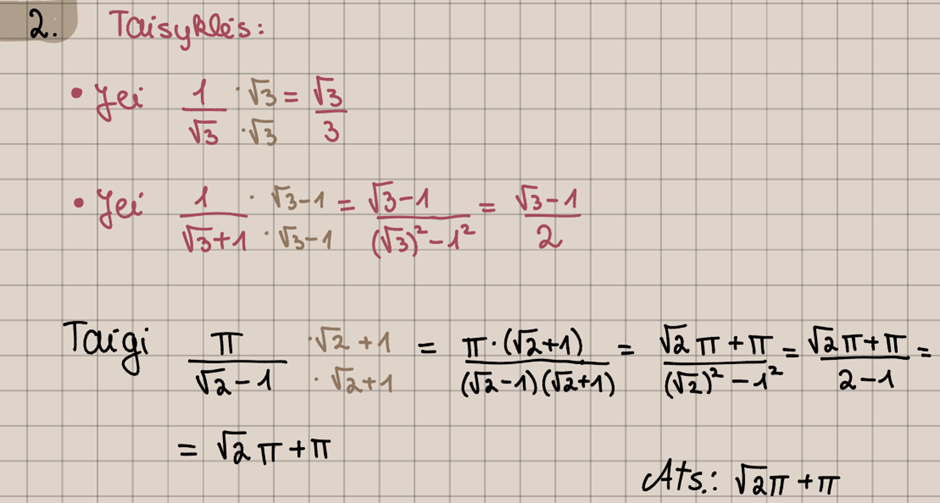 2. Taisyklės:
• Jei 1/√3 ·√3/·√3 = √3/3
• Jei 1/(√3+1) · √3-1/· √3-1 = (√3-1)/((√3)²-1²) = (√3-1)/2
Taigi π/(√2-1) ·√2+1/·√2+1 = π·(√2+1)/((√2-1)(√2+1)) = (√2π+π)/((√2)²-1²) = (√2π+π)/(2-1) =
= √2π+π
Ats.: √2π+π